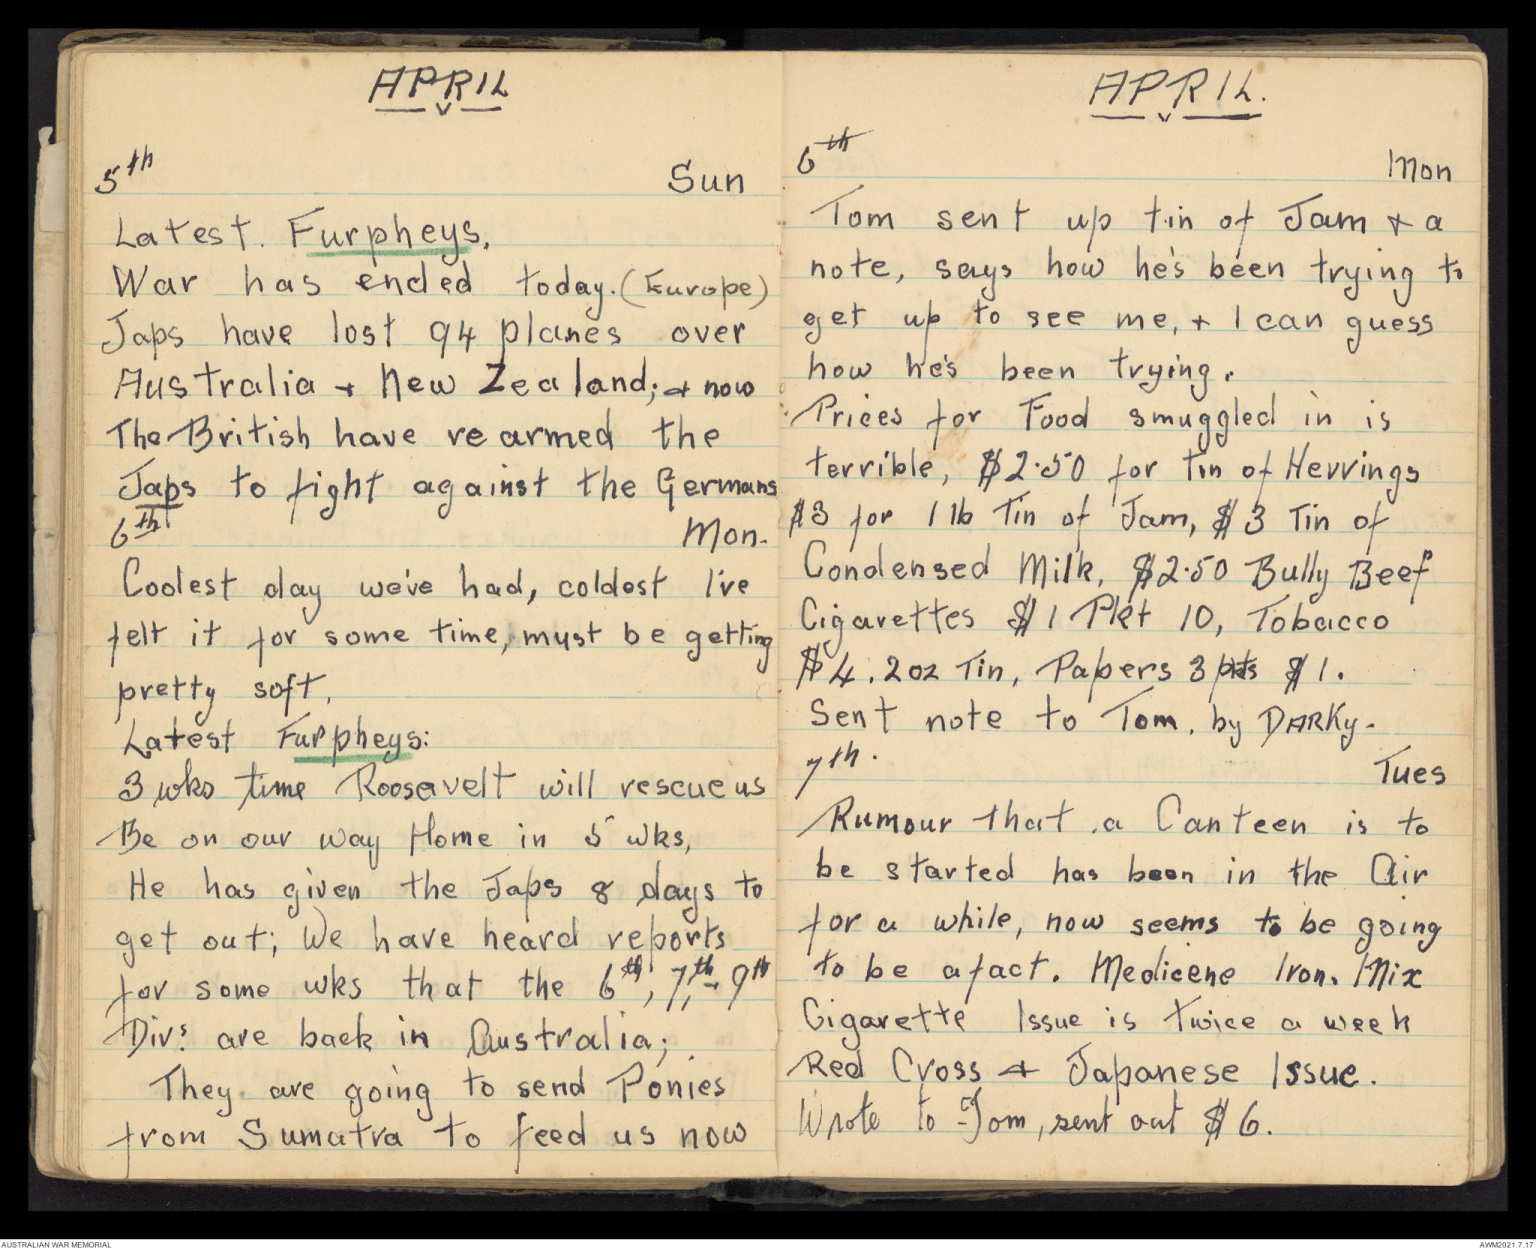 APRIL
5th Sun
Latest. Furpheys.
War has ended today. (Europe)
Japs have lost 94 planes over
Australia + New Zealand; + now
The British have re armed the
Japs to fight against the Germans
6th Mon.
Coolest day we've had, coldest I've
felt it for some time, must be getting
pretty soft.
Latest Furpheys:
3 wks time Roosavelt will rescue us
Be on our way Home in 5 wks,
He has given the Japs 8 days to
get out; We have heard reports
for some wks that the 6th, 7th, + 9th
Divs. are back in Australia;
They are going to send Ponies
from Sumatra to feed us now
APRIL.
6th Mon
Tom sent up tin of Jam + a
note, says how he's been trying to
get up to see me, + I can guess
how he's been trying.
Prices for Food smuggled in is
terrible, $2.50 for tin of Herrings
$3 for 1 lb Tin of Jam, $3 Tin of
Condensed Milk, $2.50 Bully Beef
Cigarettes $1 Pkt 10, Tobacco
$4. 2oz Tin, Papers 3 pkts $1.
Sent note to Tom. by DARKy.
7th. Tues
Rumour that a Canteen is to
be started has been in the Air
for a while, now seems to be going
to be a fact. Medicene Iron. Mix
Cigarette Issue is twice a week
Red Cross + Japanese Issue.
Wrote to Tom, sent out $6.
AUSTRALIAN WAR MEMORIAL
AWM2021.7.17